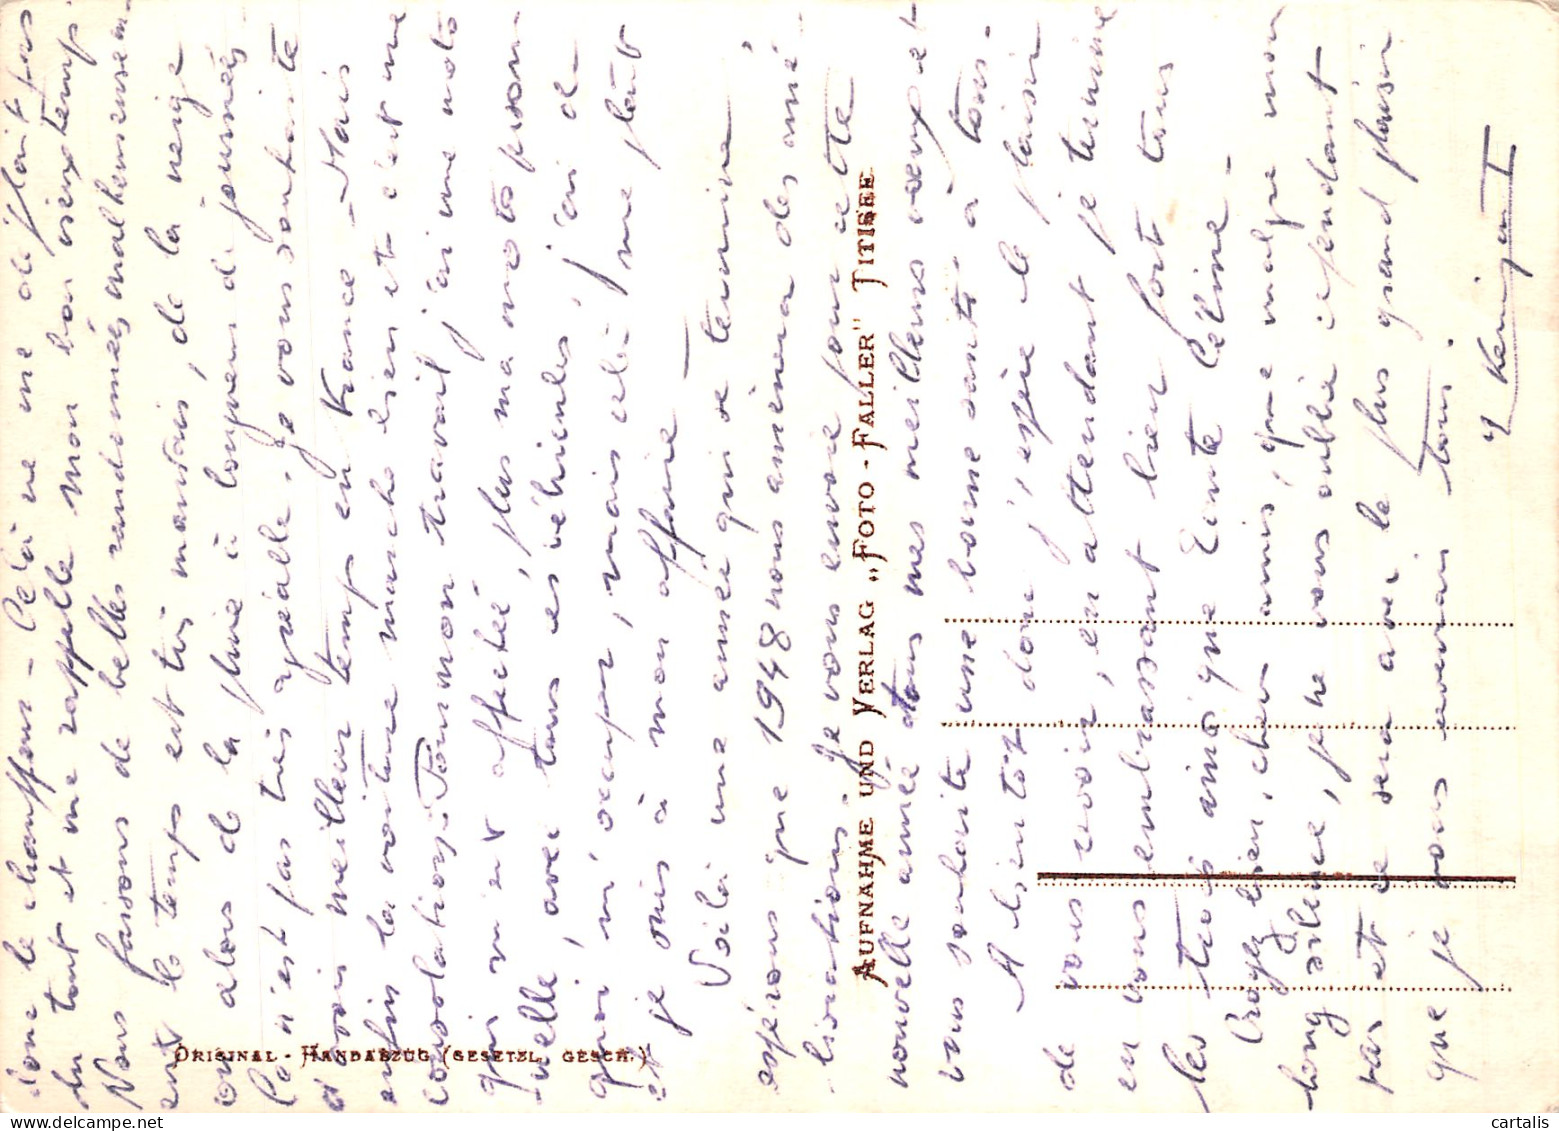 donc le chauffeur - Celà ne me déplait pas
du tout et me rappelle mon bon vieux temps.
Nous faisons de belles randonnées malheureusem-
ent le temps est très mauvais, de la neige
ou alors de la pluie à longueur de journées
Ce n'est pas très agréable. Je vous souhaite
d'avoir meilleur temps en France - Mais
enfin la voiture marche bien et c'est une
consolation. Pour mon travail j'ai une moto
qui m'est affectée, plus ma moto person-
nelle, avec tous ces véhicules, j'ai de
quoi m'occuper, mais celà me plait
et je suis à mon affaire -
Voilà une année qui se termine
espérons que 1948 nous amènera des amé-
liorations. Je vous envoie pour cette
nouvelle année tous mes meilleurs voeux et
vous souhaite une bonne santé à tous.
A bientôt donc j'espère le plaisir
de vous revoir, en attendant je termine
en vous embrassant bien fort tous
les trois ainsi que Tante Céline -
Croyez bien, chers amis, que malgré mon
long silence, je ne vous oublie cependant
pas et ce sera avec le plus grand plaisir
que je vous reverrai tous.
AUFNAHME UND VERLAG „FOTO - FALLER" TITISEE
ORIGINAL - HANDABZUG (GESETZL. GESCH.)
cartalis
www.delcampe.net